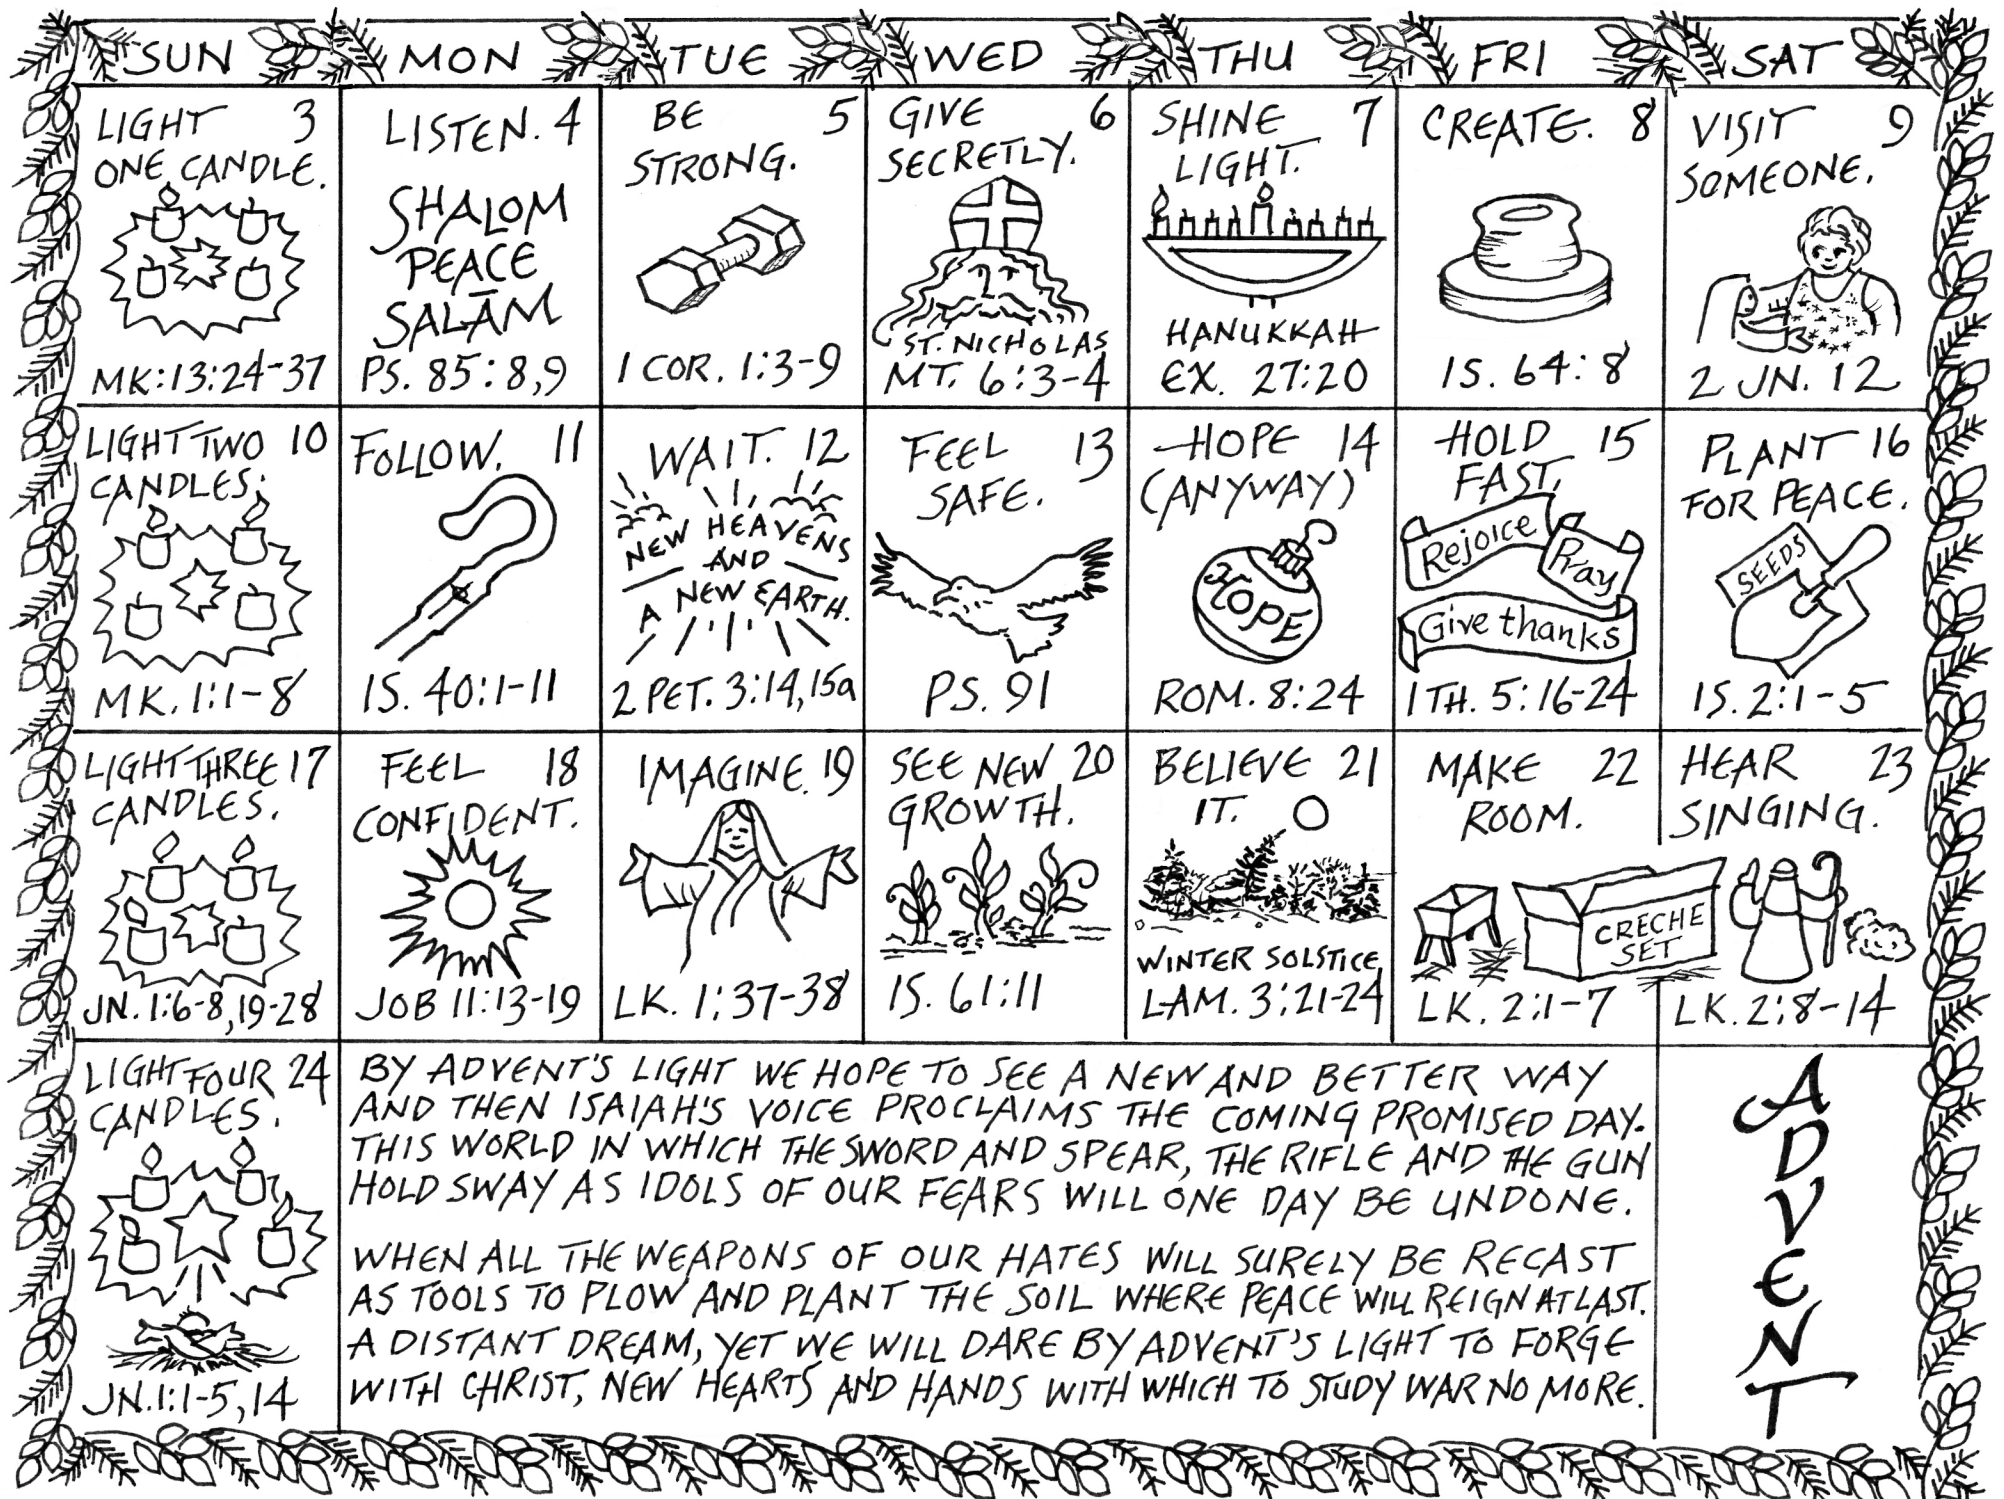 SUN MON TUE WED THU FRI SAT
LIGHT 3
ONE CANDLE.
MK:13:24-37
LISTEN. 4
SHALOM
PEACE
SALĀM
PS. 85:8,9
BE 5
STRONG.
1 COR. 1:3-9
GIVE 6
SECRETLY.
ST. NICHOLAS
MT. 6:3-4
SHINE 7
LIGHT.
HANUKKAH
EX. 27:20
CREATE. 8
IS. 64:8
VISIT 9
SOMEONE.
2 JN. 12
LIGHT TWO 10
CANDLES.
MK. 1:1-8
FOLLOW. 11
IS. 40:1-11
WAIT. 12
NEW HEAVENS
AND
A NEW EARTH.
2 PET. 3:14,15a
FEEL 13
SAFE.
PS. 91
HOPE 14
(ANYWAY)
HOPE
ROM. 8:24
HOLD 15
FAST.
Rejoice
Pray
Give thanks
1 TH. 5:16-24
PLANT 16
FOR PEACE.
SEEDS
IS. 2:1-5
LIGHT THREE 17
CANDLES.
JN. 1:6-8,19-28
FEEL 18
CONFIDENT.
JOB 11:13-19
IMAGINE. 19
LK. 1:37-38
SEE NEW 20
GROWTH.
IS. 61:11
BELIEVE 21
IT.
WINTER SOLSTICE
LAM. 3:21-24
MAKE 22
ROOM.
CRECHE
SET
LK. 2:1-7
HEAR 23
SINGING.
LK. 2:8-14
LIGHT FOUR 24
CANDLES.
JN. 1:1-5,14
BY ADVENT'S LIGHT WE HOPE TO SEE A NEW AND BETTER WAY
AND THEN ISAIAH'S VOICE PROCLAIMS THE COMING PROMISED DAY.
THIS WORLD IN WHICH THE SWORD AND SPEAR, THE RIFLE AND THE GUN
HOLD SWAY AS IDOLS OF OUR FEARS WILL ONE DAY BE UNDONE.
WHEN ALL THE WEAPONS OF OUR HATES WILL SURELY BE RECAST
AS TOOLS TO PLOW AND PLANT THE SOIL WHERE PEACE WILL REIGN AT LAST.
A DISTANT DREAM, YET WE WILL DARE BY ADVENT'S LIGHT TO FORGE
WITH CHRIST, NEW HEARTS AND HANDS WITH WHICH TO STUDY WAR NO MORE.
ADVENT